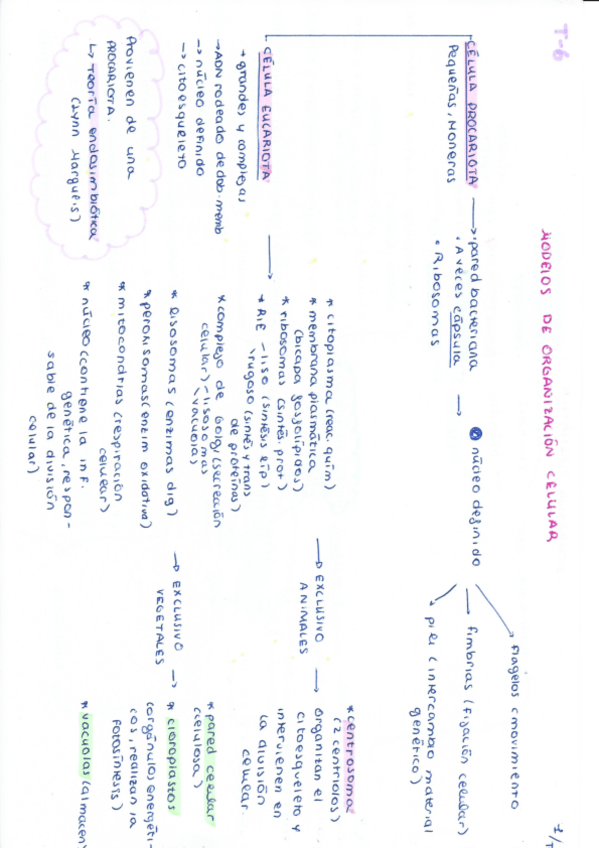 T-6
MODELOS DE ORGANIZACIÓN CELULAR
1/
CÉLULA PROCARIOTA
Pequeñas, Moneras
→ • pared bacteriana
• A veces cápsula
• Ribosomas
→
núcleo definido
flagelos (movimiento
→ fimbrias (fijación celular)
pili (intercambio material
genético)
CÉLULA EUCARIOTA
→ grandes y complejas
→ ADN rodeado de dob. memb
→ núcleo definido
→ citoesqueleto
Provienen de una
PROCARIOTA.
↳ Teoría endosimbiótica
(Lynn Margulis)
* citoplasma (reac. quím)
* membrana plasmática
(bicapa fosfolípidos)
* ribosomas (síntesi. prot)
* RE - liso (síntesis líp)
rugoso (síntes y trans
de proteínas)
* complejo de Golgi (secreción
celular) - lisosomas
vacuola
* lisosomas (enzimas dig)
* peroxisomas (enzim oxidativa)
* mitocondrias (respiración
celular)
* núcleo (contiene la inf.
genética, respon-
sable de la división
celular)
→ EXCLUSIVO
ANIMALES
→
* centrosoma
(2 centriolos)
organizan el
citoesqueleto y
intervienen en
la división
celular.
→ EXCLUSIVO
VEGETALES
→
* pared celular
(celulosa)
* cloroplastos
(orgánulos energéti-
cos, realizan la
fotosíntesis)
* vacuolas (almacen